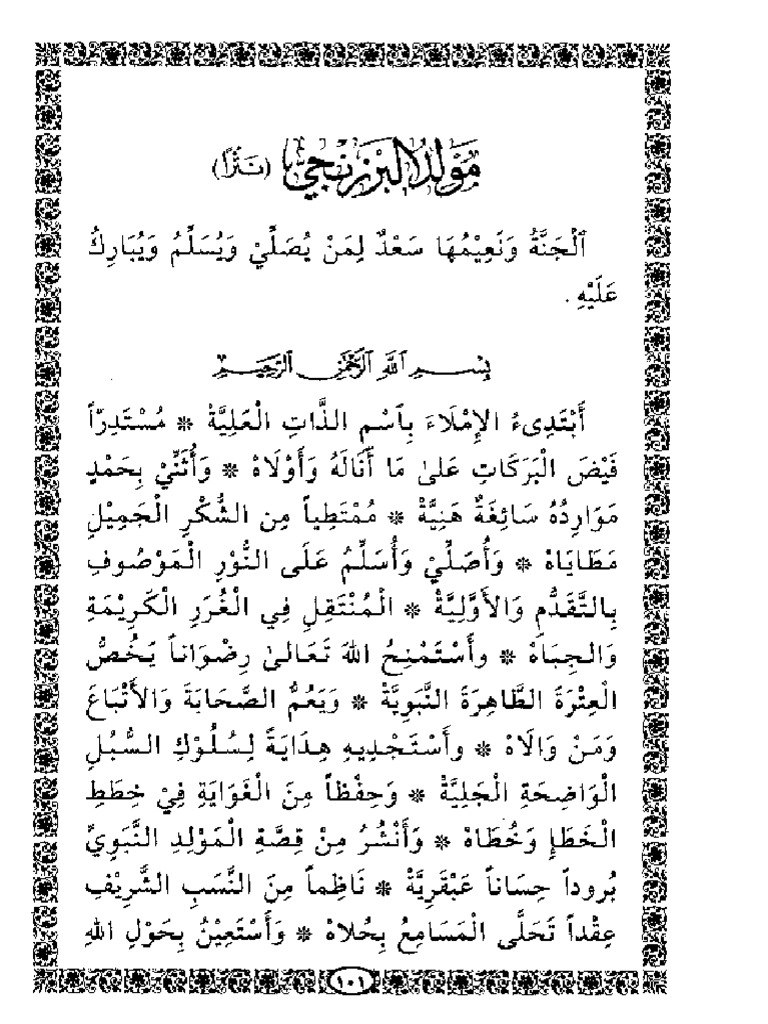 مَوْلِدُ الْبَرْزَنْجِي (نَثْرًا)
اَلْجَنَّةُ وَنَعِيْمُهَا سَعْدٌ لِمَنْ يُصَلِّيْ وَيُسَلِّمُ وَيُبَارِكُ
عَلَيْهِ .
بِسْمِ اللَّهِ الرَّحْمَٰنِ الرَّحِيمِ
أَبْتَدِىءُ الإِمْلَاءَ بِاسْمِ الذَّاتِ الْعَلِيَّةْ * مُسْتَدِرّاً
فَيْضَ الْبَرَكَاتِ عَلىٰ مَا أَنَالَهُ وَأَوْلَاهْ * وَأُثَنِّيْ بِحَمْدٍ
مَوَارِدُهُ سَائِغَةٌ هَنِيَّةْ * مُمْتَطِياً مِنَ الشُّكْرِ الْجَمِيْلِ
مَطَايَاهْ * وَأُصَلِّيْ وَأُسَلِّمُ عَلَى النُّوْرِ الْمَوْصُوفِ
بِالتَّقَدُّمِ وَالأَوَّلِيَّةْ * الْمُنْتَقِلِ فِي الْغُرَرِ الْكَرِيْمَةِ
وَالْجِبَاهْ * وأَسْتَمْنِحُ اللهَ تَعَالىٰ رِضْوَاناً يَخُصُّ
الْعِتْرَةَ الطَّاهِرَةَ النَّبَوِيَّةْ * وَيَعُمُّ الصَّحَابَةَ وَالأَتْبَاعَ
وَمَنْ وَالَاهْ * وأَسْتَجْدِيهِ هِدَايَةً لِسُلُوْكِ السُّبُلِ
الْوَاضِحَةِ الْجَلِيَّةْ * وَحِفْظاً مِنَ الْغَوَايَةِ فِيْ خِطَطِ
الْخَطَإِ وَخُطَاهْ * وَأَنْشُرُ مِنْ قِصَّةِ الْمَوْلِدِ النَّبَوِيِّ
بُروداً حِسَاناً عَبْقَرِيَّةْ * نَاظِماً مِنَ النَّسَبِ الشَّرِيْفِ
عِقْداً تَحَلَّى الْمَسَامِعُ بِحُلَاهْ * وَأَسْتَعِيْنُ بِحَوْلِ اللهِ
١٠١